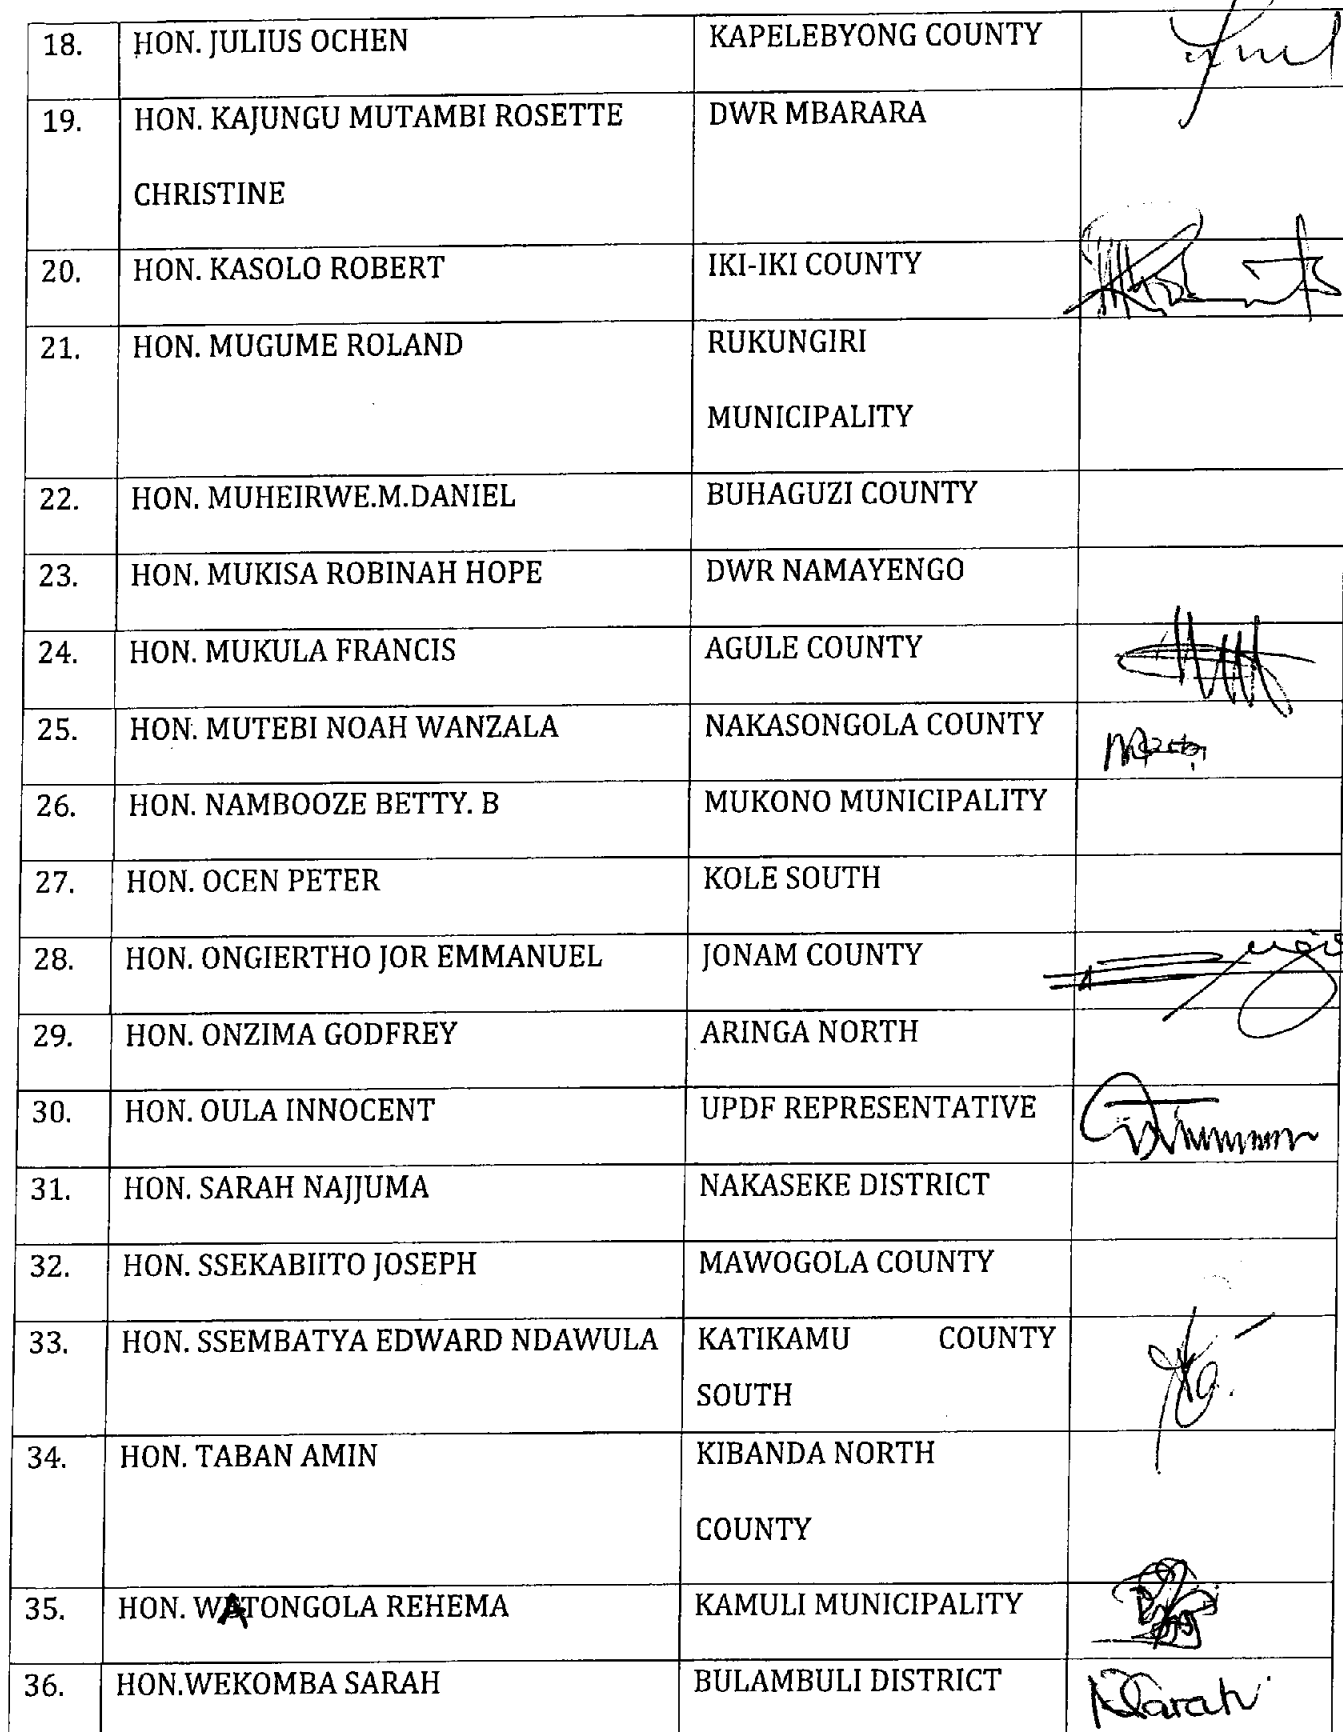 18. HON. JULIUS OCHEN KAPELEBYONG COUNTY
19. HON. KAJUNGU MUTAMBI ROSETTE DWR MBARARA
CHRISTINE
20. HON. KASOLO ROBERT IKI-IKI COUNTY
21. HON. MUGUME ROLAND RUKUNGIRI
MUNICIPALITY
22. HON. MUHEIRWE.M.DANIEL BUHAGUZI COUNTY
23. HON. MUKISA ROBINAH HOPE DWR NAMAYENGO
24. HON. MUKULA FRANCIS AGULE COUNTY
25. HON. MUTEBI NOAH WANZALA NAKASONGOLA COUNTY
26. HON. NAMBOOZE BETTY. B MUKONO MUNICIPALITY
27. HON. OCEN PETER KOLE SOUTH
28. HON. ONGIERTHO JOR EMMANUEL JONAM COUNTY
29. HON. ONZIMA GODFREY ARINGA NORTH
30. HON. OULA INNOCENT UPDF REPRESENTATIVE
31. HON. SARAH NAJJUMA NAKASEKE DISTRICT
32. HON. SSEKABIITO JOSEPH MAWOGOLA COUNTY
33. HON. SSEMBATYA EDWARD NDAWULA KATIKAMU COUNTY
SOUTH
34. HON. TABAN AMIN KIBANDA NORTH
COUNTY
35. HON. WATONGOLA REHEMA KAMULI MUNICIPALITY
36. HON.WEKOMBA SARAH BULAMBULI DISTRICT